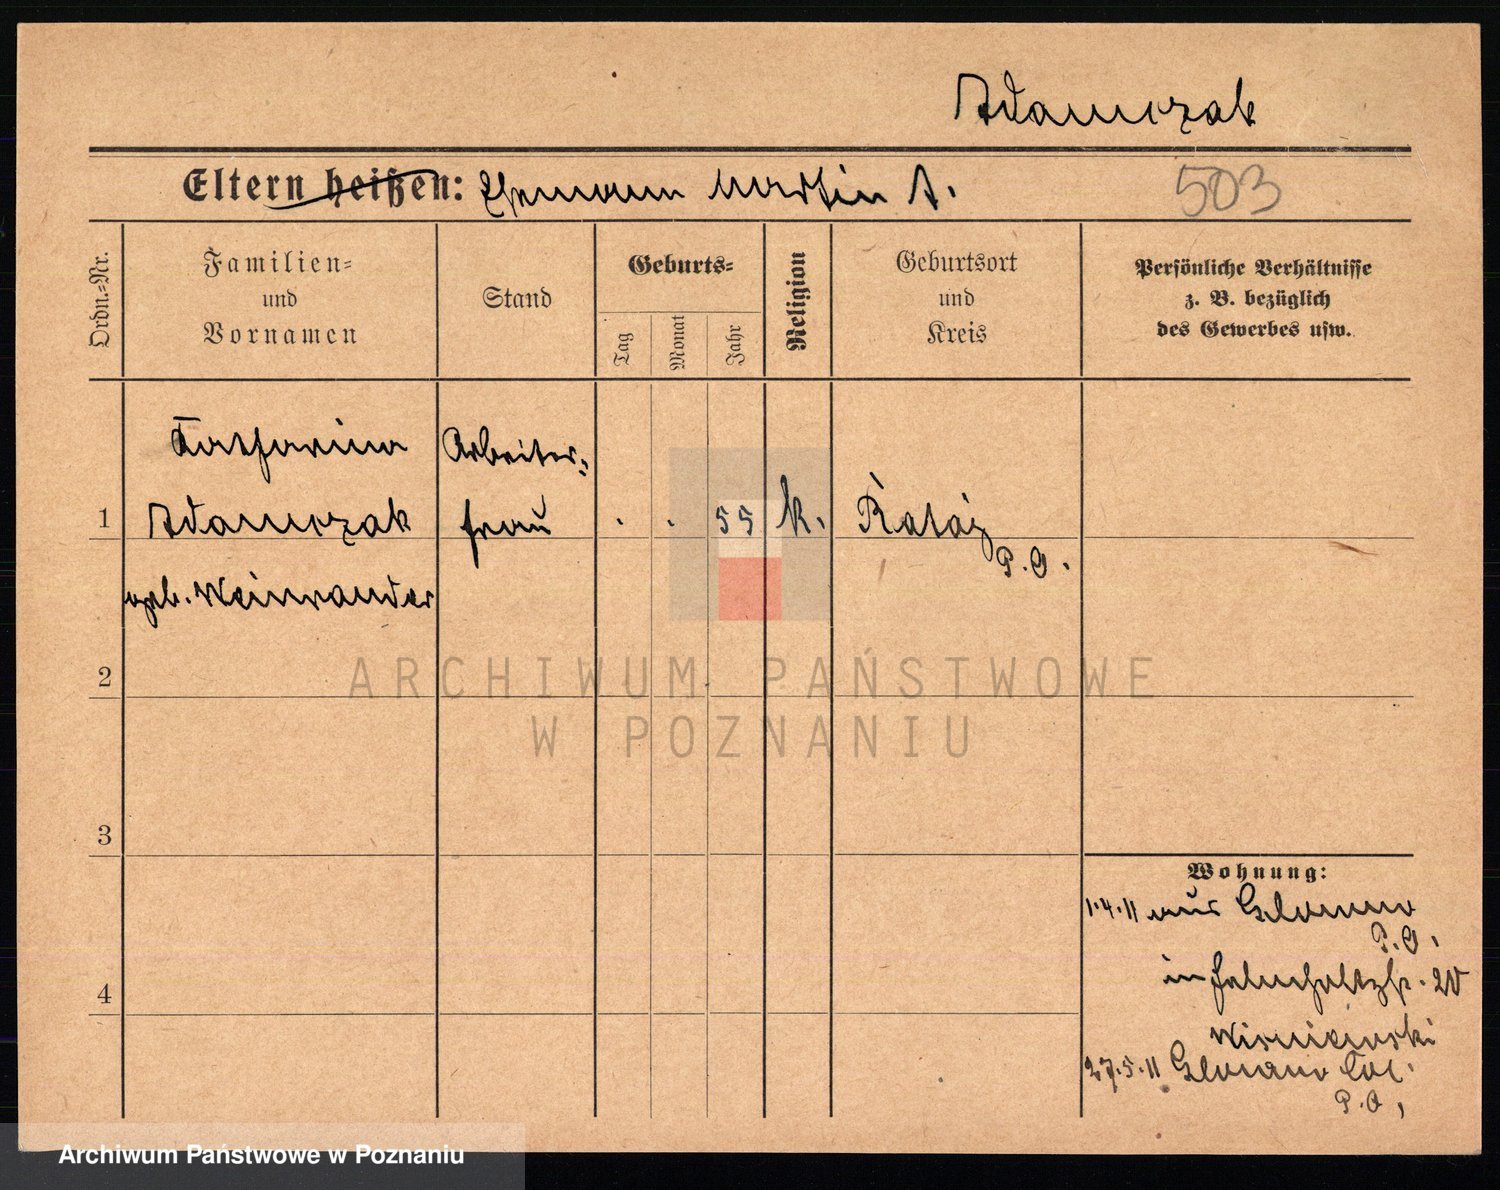 Adamczak
Eltern heißen: Ehemann Martin A.
503
Ordn.-Nr.
Familien-
und
Vornamen
Stand
Geburts-
Tag
Monat
Jahr
Religion
Geburtsort
und
Kreis
Persönliche Verhältnisse
z. B. bezüglich
des Gewerbes usw.
Katharina
Arbeiter-
1 Adamczak
frau
. . 55 k. Rataj
P. O.
geb. Weinrander
2
ARCHIWUM PAŃSTWOWE
W POZNANIU
3
Wohnung:
1.4.11 aus Glowno
P. O.
4
in 20
Wisniewski
27.5.11 Glowno
P. O.
Archiwum Państwowe w Poznaniu